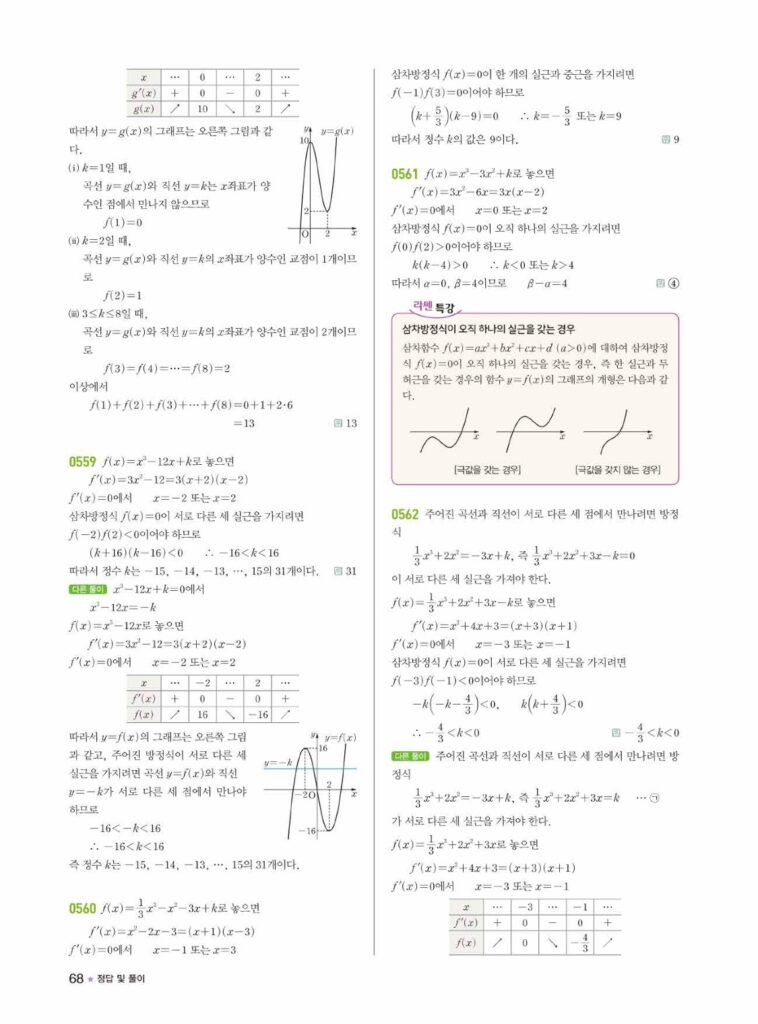 x … 0 … 2 …
g'(x) + 0 - 0 +
g(x) ↗ 10 ↘ 2 ↗
따라서 y=g(x)의 그래프는 오른쪽 그림과 같
다.
(ⅰ) k=1일 때,
곡선 y=g(x)와 직선 y=k는 x좌표가 양
수인 점에서 만나지 않으므로
f(1)=0
(ⅱ) k=2일 때,
곡선 y=g(x)와 직선 y=k의 x좌표가 양수인 교점이 1개이므
로
f(2)=1
(ⅲ) 3≤k≤8일 때,
곡선 y=g(x)와 직선 y=k의 x좌표가 양수인 교점이 2개이므
로
f(3)=f(4)=…=f(8)=2
이상에서
f(1)+f(2)+f(3)+…+f(8)=0+1+2·6
=13 답 13
y y=g(x)
10
2
O 2 x
0559 f(x)=x³-12x+k로 놓으면
f'(x)=3x²-12=3(x+2)(x-2)
f'(x)=0에서 x=-2 또는 x=2
삼차방정식 f(x)=0이 서로 다른 세 실근을 가지려면
f(-2)f(2)<0이어야 하므로
(k+16)(k-16)<0 ∴ -16<k<16
따라서 정수 k는 -15, -14, -13, …, 15의 31개이다. 답 31
다른 풀이 x³-12x+k=0에서
x³-12x=-k
f(x)=x³-12x로 놓으면
f'(x)=3x²-12=3(x+2)(x-2)
f'(x)=0에서 x=-2 또는 x=2
x … -2 … 2 …
f'(x) + 0 - 0 +
f(x) ↗ 16 ↘ -16 ↗
따라서 y=f(x)의 그래프는 오른쪽 그림
과 같고, 주어진 방정식이 서로 다른 세
실근을 가지려면 곡선 y=f(x)와 직선
y=-k가 서로 다른 세 점에서 만나야
하므로
-16<-k<16
∴ -16<k<16
즉 정수 k는 -15, -14, -13, …, 15의 31개이다.
y y=f(x)
16
y=-k
-2 O 2 x
-16
0560 f(x)=1/3x³-x²-3x+k로 놓으면
f'(x)=x²-2x-3=(x+1)(x-3)
f'(x)=0에서 x=-1 또는 x=3
68 ★ 정답 및 풀이
삼차방정식 f(x)=0이 한 개의 실근과 중근을 가지려면
f(-1)f(3)=0이어야 하므로
(k+5/3)(k-9)=0 ∴ k=-5/3 또는 k=9
따라서 정수 k의 값은 9이다. 답 9
0561 f(x)=x³-3x²+k로 놓으면
f'(x)=3x²-6x=3x(x-2)
f'(x)=0에서 x=0 또는 x=2
삼차방정식 f(x)=0이 오직 하나의 실근을 가지려면
f(0)f(2)>0이어야 하므로
k(k-4)>0 ∴ k<0 또는 k>4
따라서 α=0, β=4이므로 β-α=4 답 ④
라쎈 특강
삼차방정식이 오직 하나의 실근을 갖는 경우
삼차함수 f(x)=ax³+bx²+cx+d (a>0)에 대하여 삼차방정
식 f(x)=0이 오직 하나의 실근을 갖는 경우, 즉 한 실근과 두
허근을 갖는 경우의 함수 y=f(x)의 그래프의 개형은 다음과 같
다.
x x x
[극값을 갖는 경우] [극값을 갖지 않는 경우]
0562 주어진 곡선과 직선이 서로 다른 세 점에서 만나려면 방정
식
1/3x³+2x²=-3x+k, 즉 1/3x³+2x²+3x-k=0
이 서로 다른 세 실근을 가져야 한다.
f(x)=1/3x³+2x²+3x-k로 놓으면
f'(x)=x²+4x+3=(x+3)(x+1)
f'(x)=0에서 x=-3 또는 x=-1
삼차방정식 f(x)=0이 서로 다른 세 실근을 가지려면
f(-3)f(-1)<0이어야 하므로
-k(-k-4/3)<0, k(k+4/3)<0
∴ -4/3<k<0 답 -4/3<k<0
다른 풀이 주어진 곡선과 직선이 서로 다른 세 점에서 만나려면 방
정식
1/3x³+2x²=-3x+k, 즉 1/3x³+2x²+3x=k …㉠
가 서로 다른 세 실근을 가져야 한다.
f(x)=1/3x³+2x²+3x로 놓으면
f'(x)=x²+4x+3=(x+3)(x+1)
f'(x)=0에서 x=-3 또는 x=-1
x … -3 … -1 …
f'(x) + 0 - 0 +
f(x) ↗ 0 ↘ -4/3 ↗